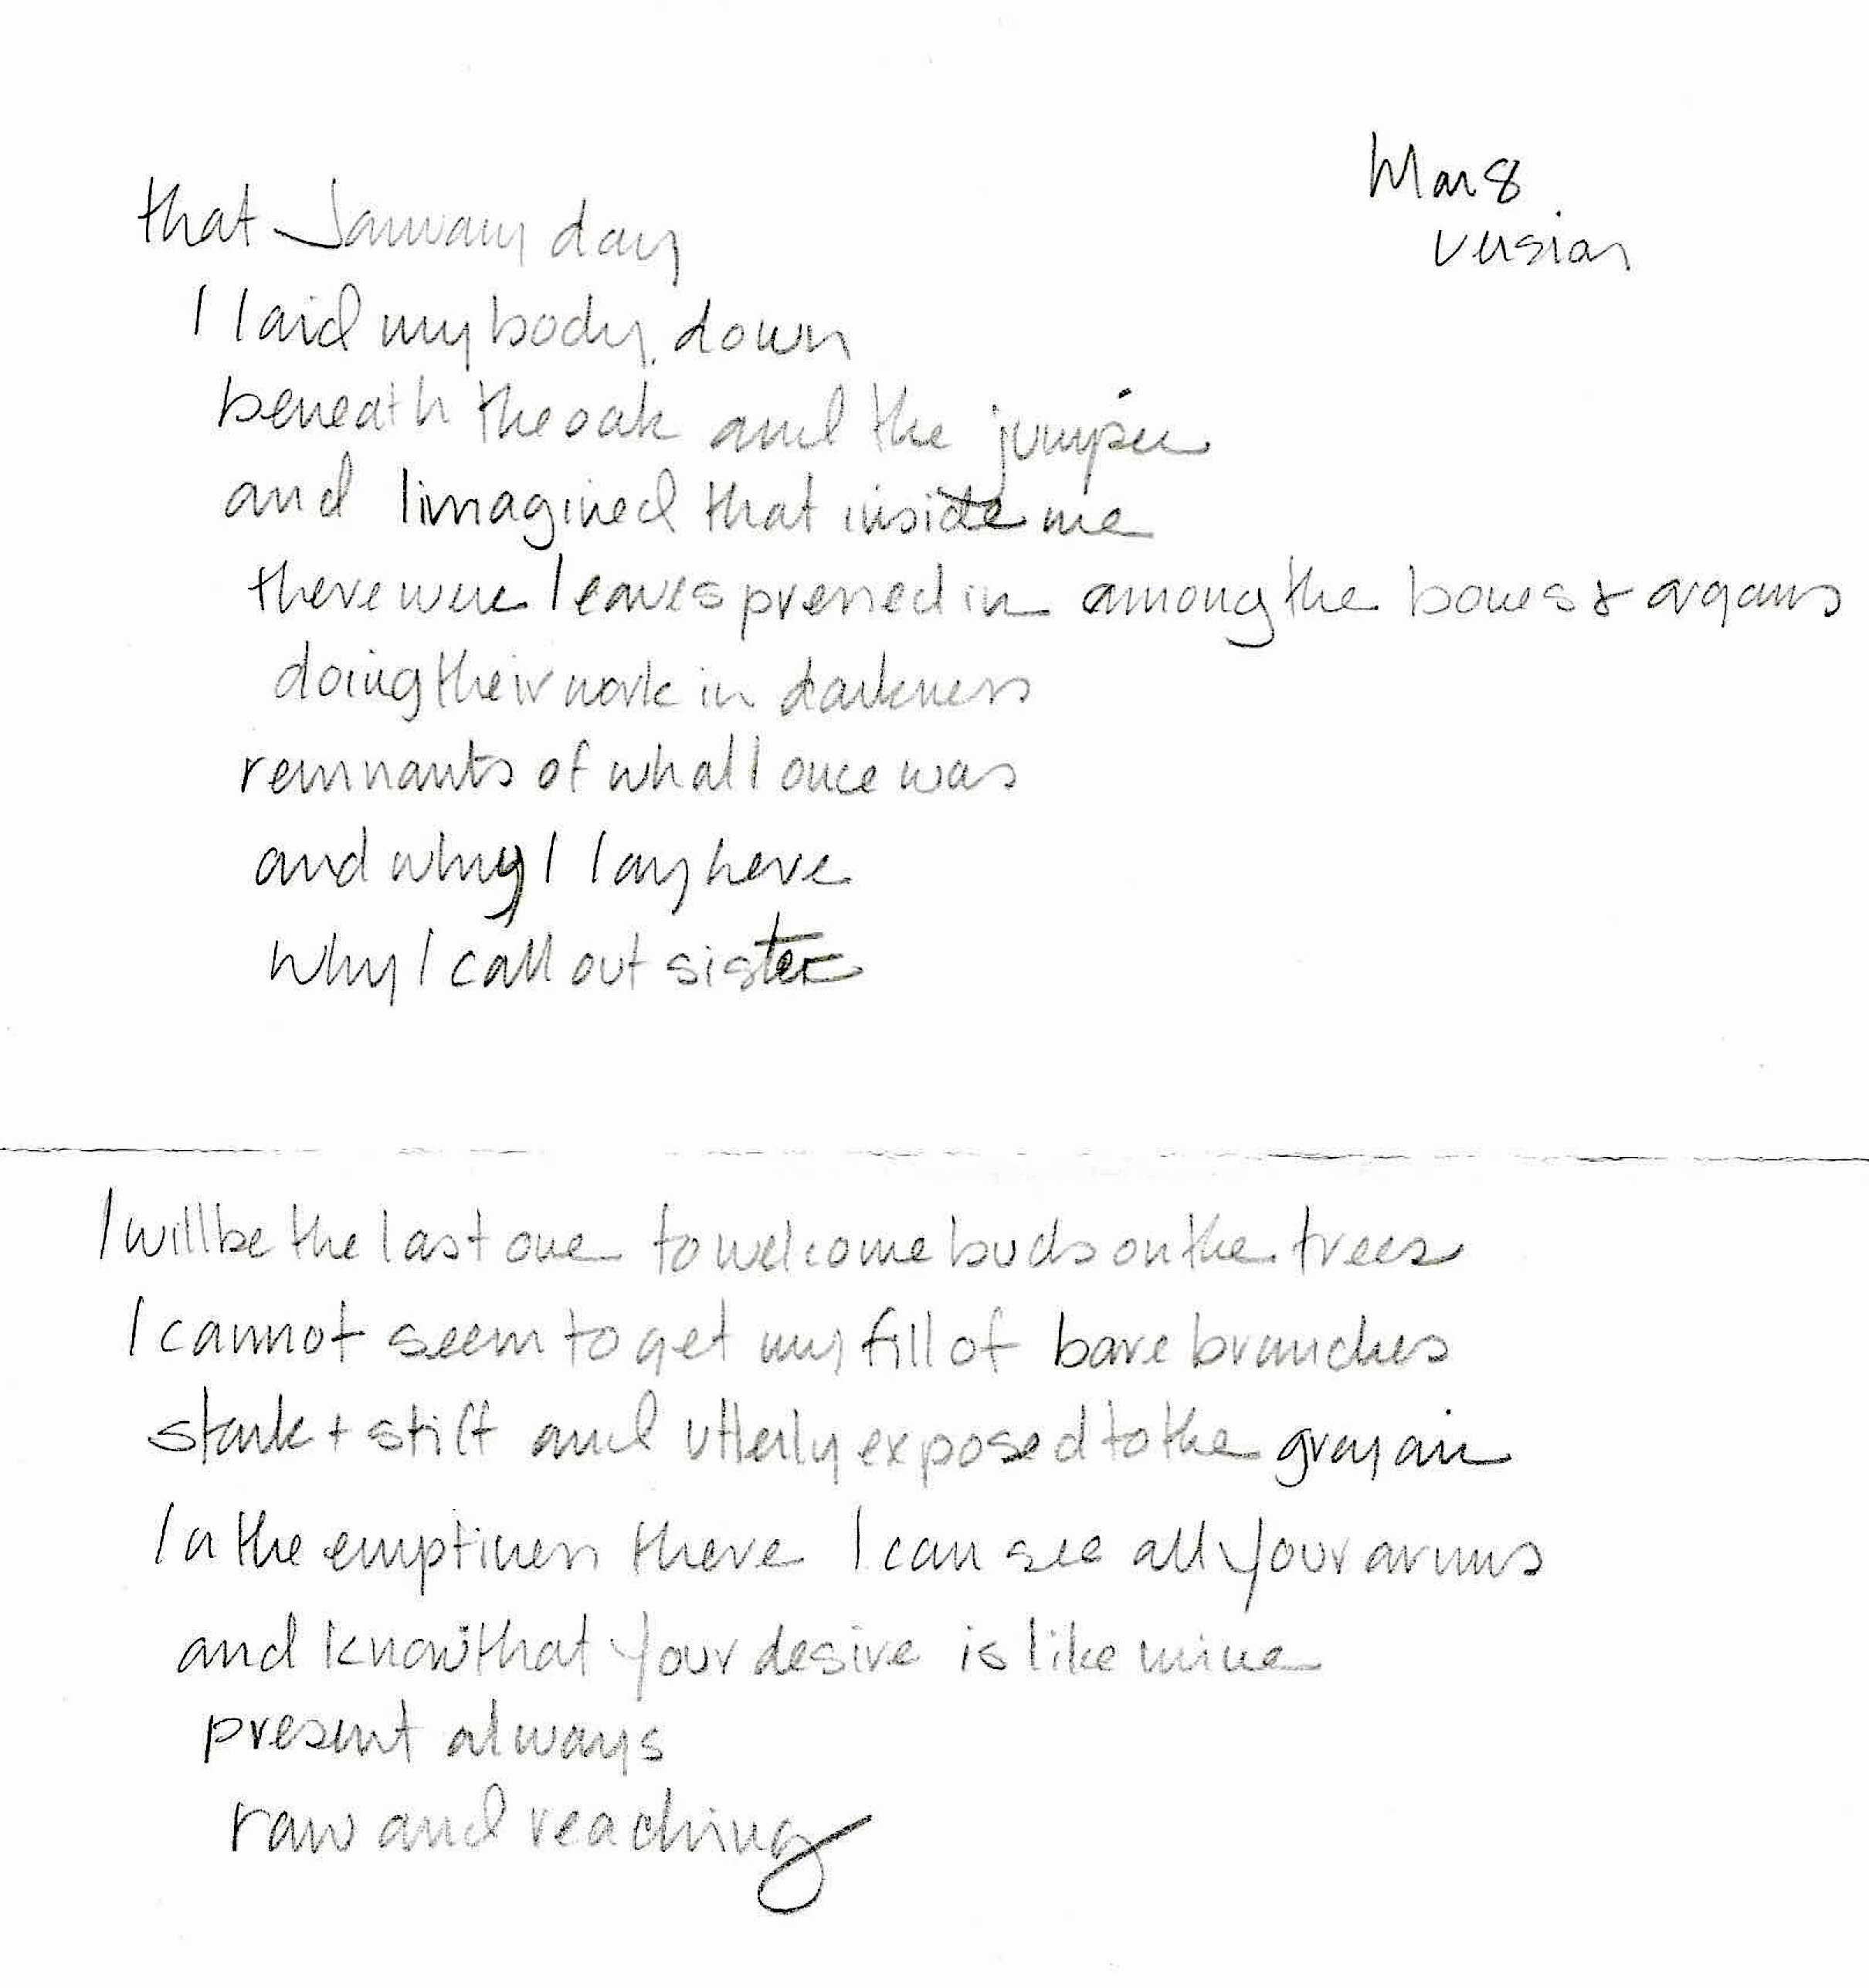 Mar 8
version
that January day
I laid my body down
beneath the oak and the juniper
and I imagined that inside me
there were leaves pressed in among the bones & organs
doing their work in darkness
remnants of what I once was
and why I lay here
why I call out sister
I will be the last one to welcome buds on the trees
I cannot seem to get my fill of bare branches
stark + stiff and utterly exposed to the gray air
In the emptiness there I can see all your arms
and know that your desire is like mine
present always
raw and reaching